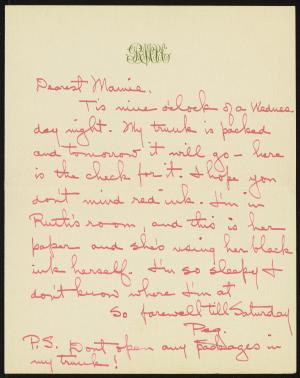 Dearest Mamie,
Tis nine o'clock of a Wednes
day night. My trunk is packed
and tomorrow it will go - here
is the check for it. I hope you
don't mind red ink. I'm in
Ruth's room, and this is her
paper and she's using her black
ink herself. I'm so sleepy I
don't know where I'm at
So farewell till Saturday
Peg.
P.S. Dont open any packages in
my trunk!